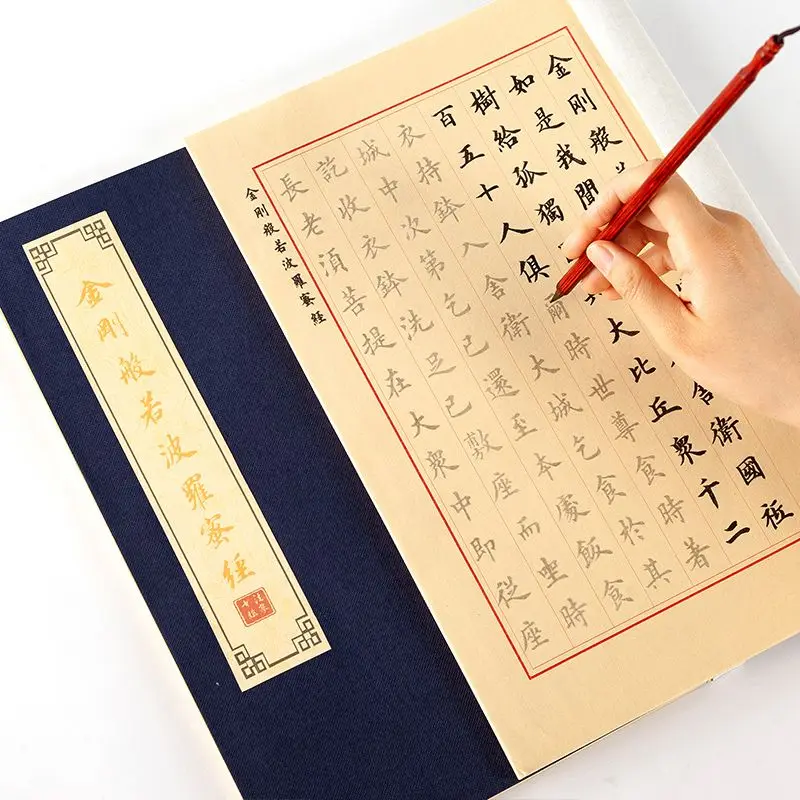 金剛般若
如是我聞
舍衛國祇
樹給孤獨
大比丘衆千二
百五十人俱爾時世尊食時著
衣持鉢入舍衛大城乞食於其
城中次第乞已還至本處飯食
訖收衣鉢洗足已敷座而坐時
長老須菩提在大衆中即從座
金剛般若波羅蜜經
金剛般若波羅蜜經